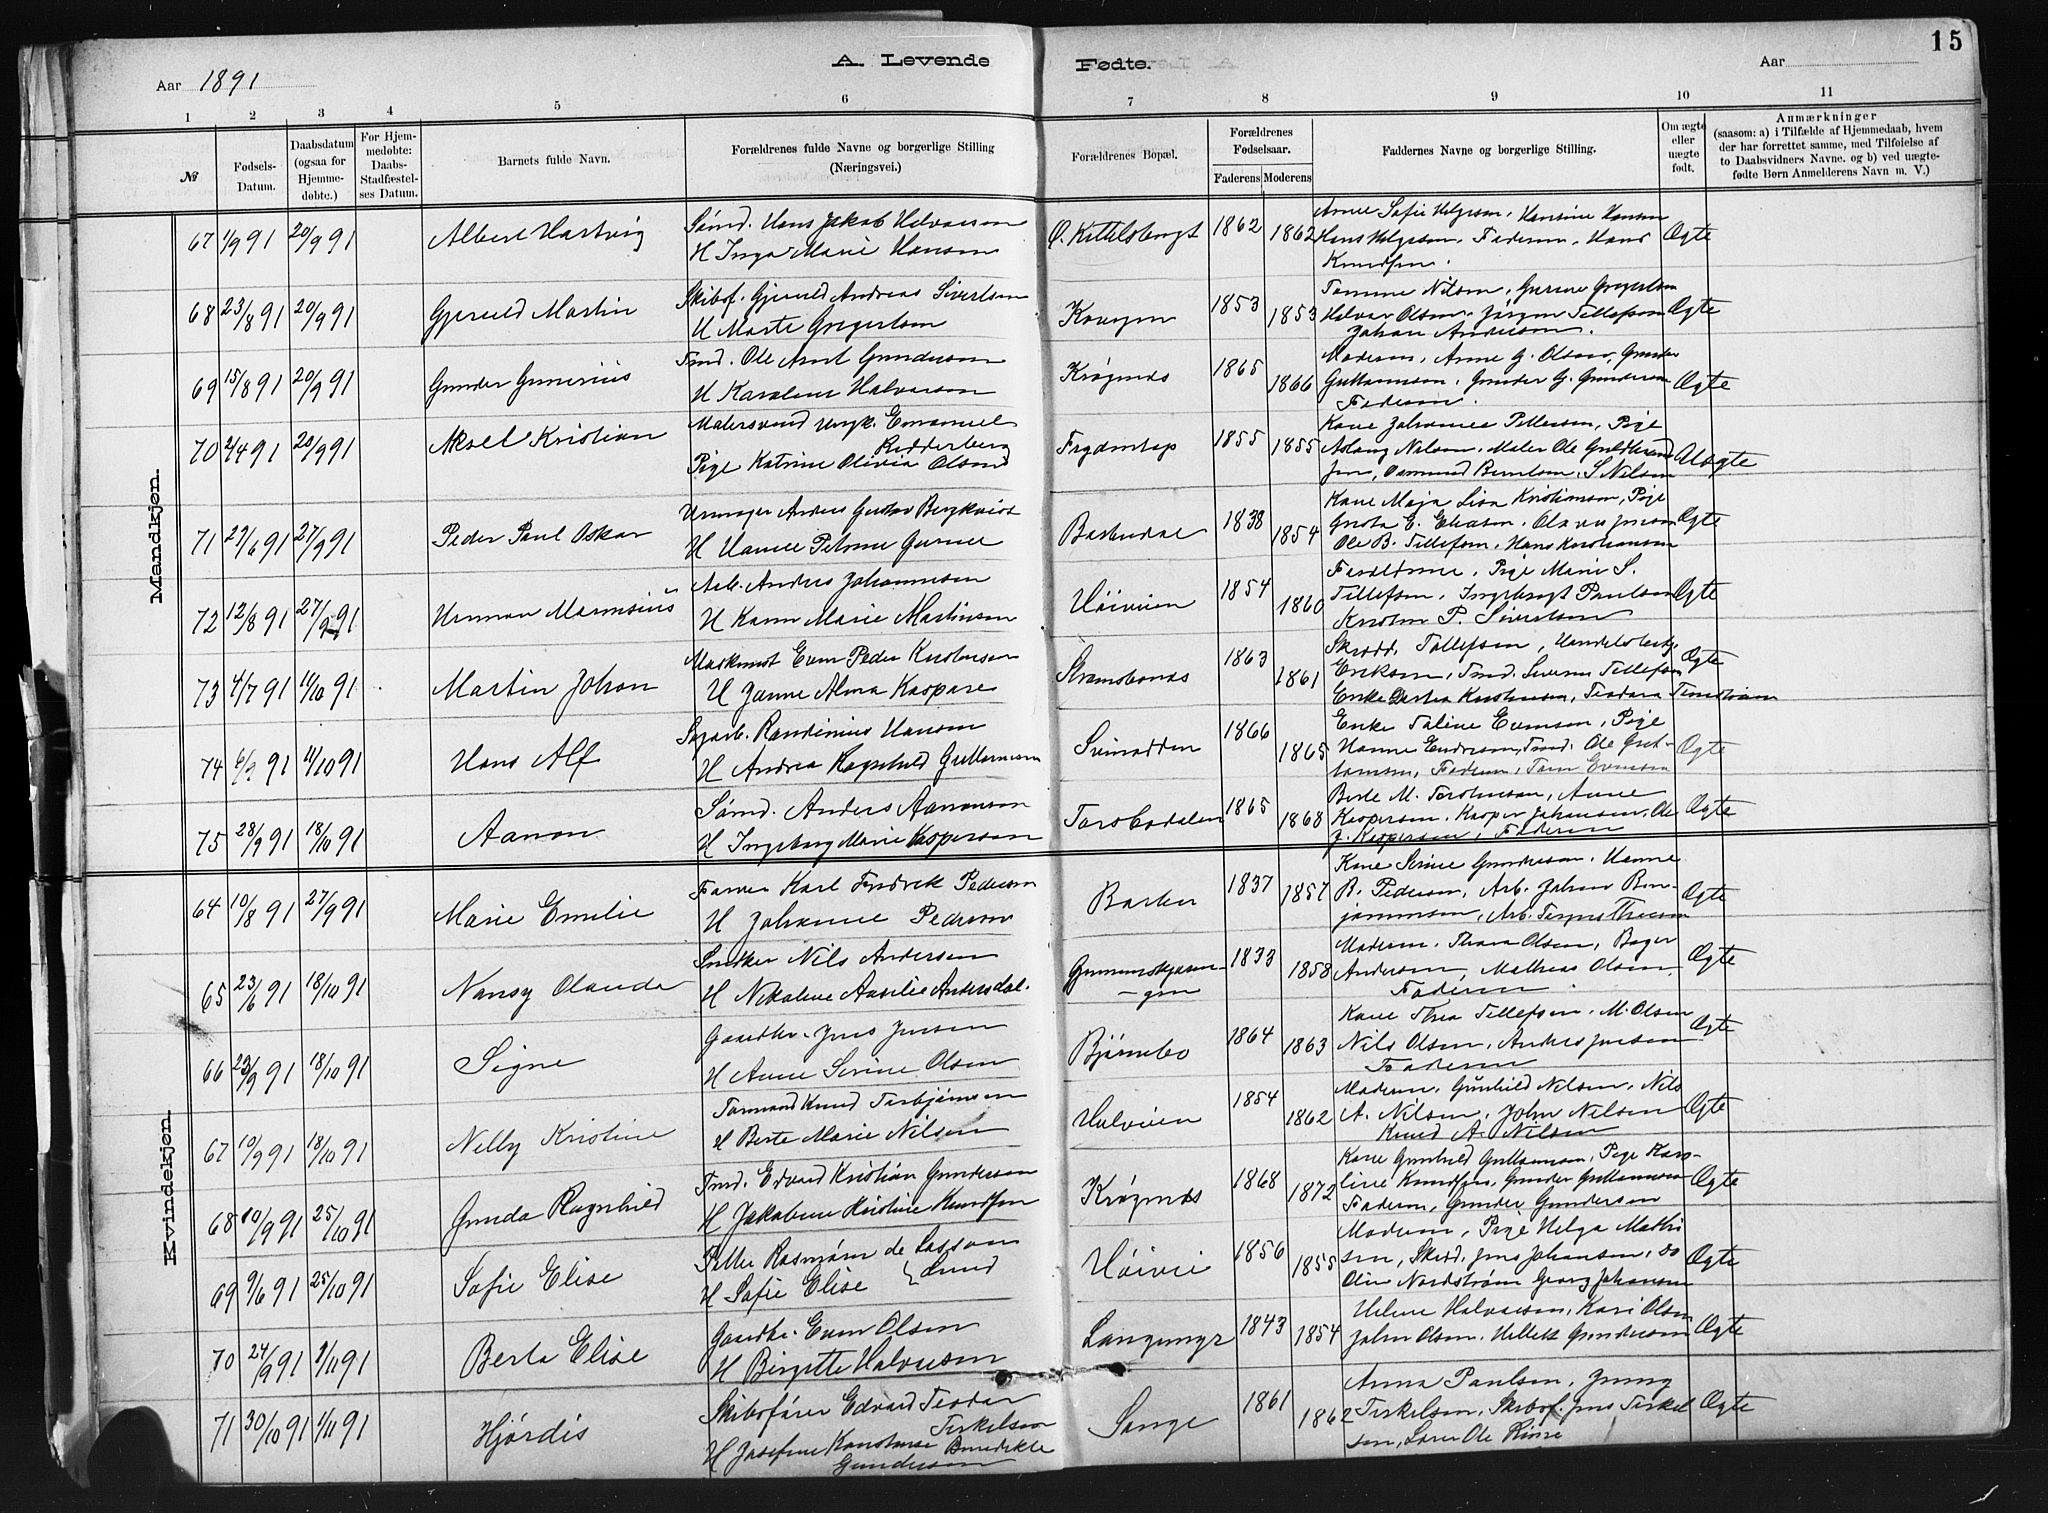 15
A. Levende Fødte.
Aar 1891
Aar
1 2 3 4 5 6 7 8 9 10 11
№
Fødsels-Datum.
Daabsdatum (ogsaa for Hjemmedøbte.)
For Hjemmedøbte: Daabs-Stadfæstelses Datum.
Barnets fulde Navn.
Forældrenes fulde Navne og borgerlige Stilling (Næringsvei.)
Forældrenes Bopæl.
Forældrenes Fødselsaar.
Faderens Moderens
Faddernes Navne og borgerlige Stilling.
Om ægte eller uægte født.
Anmærkninger (saasom: a) i Tilfælde af Hjemmedaab, hvem der har forrettet samme, med Tilføielse af to Daabsvidners Navne. og b) ved uægtefødte Børn Anmelderens Navn m. V.)
Mandkjøn.
67 1/9 91 20/9 91 Albert Hartvig
Sømd. Hans Jakob Halvorsen
H Inga Marie Hansen
1862 1862
Anne Sofie Helgesen, Hansine Hansen
Hans Helgesen, Faderen, Hans
Knudsen.
Ægte
68 23/8 91 20/9 91 Gjeruld Martin
Skibsf. Gjeruld Andreas Sivertsen
H Marte Gregersen
1853 1853
Halvor Olsen, Jørgen Tellefsen
Johan Andersen.
Ægte
69 15/8 91 20/9 91 Gunder Gunerius
Tmd. Ole Amt Gundersen
H Karoline Halvorsen
Krøgenes 1865 1866
Moderen, Anne G. Olsen, Gunder
Guttormsen, Gunder G. Gundersen
Faderen.
Ægte
70 2/4 91 20/9 91 Aksel Kristian
Malersvend Ungk. Emanuel
Redderberg
Pige Katrine Olivia Olsen
1855 1855
Kone Johanne Pettersen, Pige
Aslaug Nilsen, Maler Ole
S. Nilsen
Uægte
71 27/6 91 27/9 91 Peder Paul Oskar
Urmager Anders Gustav Bergkvist
H Hanne Petrine Gurine
Barbudal 1838 1854
Kone Maja Lisa Kristiansen, Pige
Greta E. Eliasen, Olava Jensen
Ole B. Tellefsen, Hans Kristiansen
Ægte
72 12/8 91 27/9 91 Herman Marensius
Arb. Anders Johannesen
H Karen Marie Martinsen
Høiveien 1854 1860
Forældrene, Pige Marie S.
Tellefsen, Ingeborgt Paulsen
P. Sivertsen
Ægte
73 4/7 91 11/10 91 Martin Johan
Maskinist Even Peder Kristensen
H Janne Alma Kaspara
Strømsbonæs 1863 1861
Skrædd. Tellefsen,
Eriksen, Tmd. Severin Tellefsen
Enke Dortea Kristensen, Teodora
Ægte
74 6/9 91 11/10 91 Hans Alf
Sagarb. Randinius Hansen
H Andrea Ragnhild Guttormsen
Svinodden 1866 1865
Enke Taline Evensen, Pige
Hanne Endresen, Tmd. Ole Gut-
tormsen, Faderen, Tom Evensen
Ægte
75 28/9 91 18/10 91 Aanon
Sømd. Anders Aanonsen
H Ingeborg Marie Kaspersen
Torsbudalen 1865 1868
Berte M. Torstensen, Anne
Kaspersen, Kasper Johansen, Ole
J. Kaspersen, Faderen
Ægte
Kvindekjøn.
64 10/8 91 27/9 91 Marie Emilie
Farver Karl Fredrik Pedersen
H Johanne Pedersen
Barbu 1837 1857
Kone Serine Gundersen, Hanne
B. Pedersen, Arb. Johan Ben-
jaminsen, Arb.
Ægte
65 23/6 91 18/10 91 Nansy Olanda
Snedker Nils Andersen
H Nikoline Aasilie Andersdat.
1833 1858
Moderen, Thora Olsen, Bager
Andersen, Mathias Olsen,
Faderen.
Ægte
66 23/9 91 18/10 91 Signe
Gaardbr. Jens Jensen
H Anne Serine Olsen
Bjørnebo 1864 1863
Kone Thea Tellefsen, M. Olsen
Nils Olsen, Anders Jensen
Faderen
Ægte
67 10/9 91 18/10 91 Nelly Kristine
Tømmermand Knud Torbjørnsen
H Berte Marie Nilsen
Halveien 1854 1862
Moderen, Gunhild Nilsen, Nils
A. Nilsen, John Nilsen
Knud A. Nilsen
Ægte
68 10/9 91 25/10 91 Gunda Ragnhild
Tmd. Edvard Kristian Gundersen
H Jakobine Kristine Knudsen
Krøgenes 1868 1872
Kone Gunhild Guttormsen, Pige Karo-
line Knudsen, Gunder Guttormsen
Faderen, Gunder Gundersen
Ægte
69 9/6 91 25/10 91 Sofie Elise
Petter Rasmøsen de Lasson
H Sofie Elise } Lund
Høivei 1856 1855
Moderen, Pige Helga Mathi
sen, Skrdd. Jens Johansen, Do
Olin Nordstrøm Georg Johansen
Ægte
70 24/9 91 1/11 91 Berta Elise
Gaardbr. Even Olsen
H Birgitte Halvorsen
Langangs 1843 1854
Helene Halvorsen, Kari Olsen
John Olsen, Gundersen
Ægte
71 30/10 91 1/11 91 Hjørdis
Skibsfører Edvard Teodor
Terkelsen
H Josefine Konstanse Benedikte
Gundersen
Songe 1861 1862
Anna Paulsen, Jenny
Terkelsen, Skibsf. Jens Terkel
sen,
Ægte